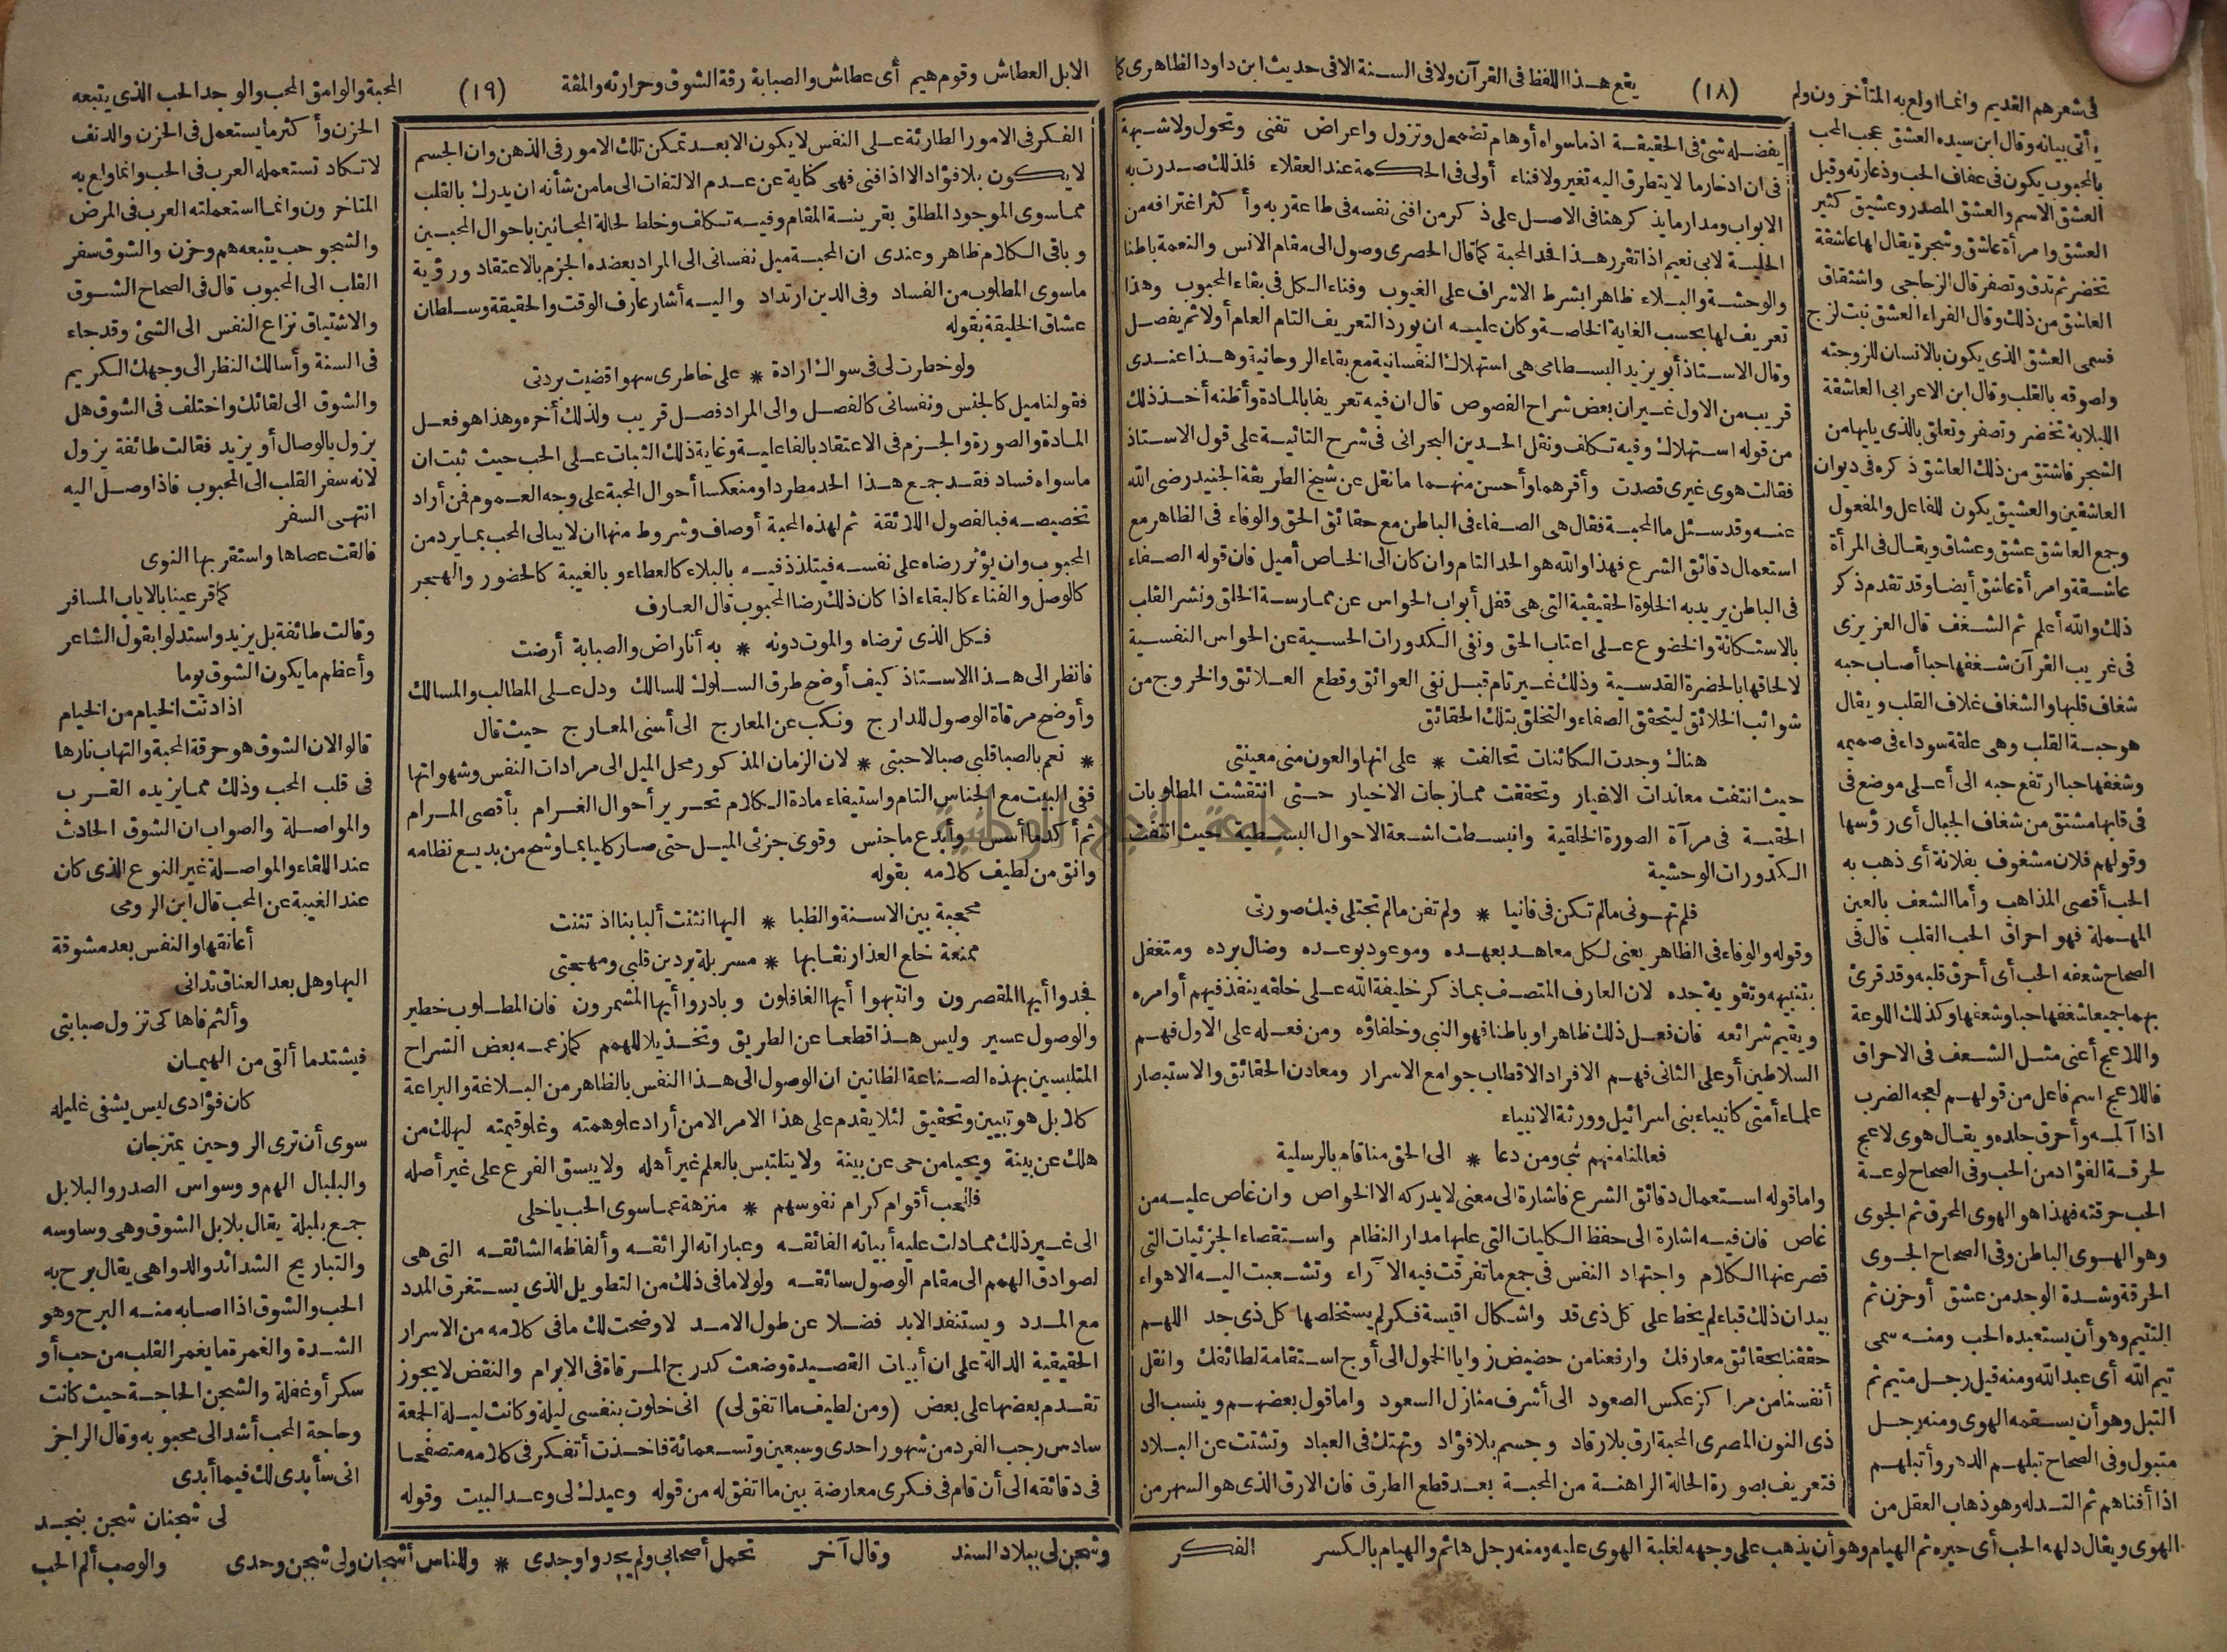 (١٨)
يقع هذا اللفظ فى القرآن ولا فى السنة الا فى حديث ابن داود الظاهرى كما
فى شعرهم القديم وانما اولع به المتأخرون ولم
يأتى بيانه وقال ابن سيده العشق عجب المحب
بالمحبوب يكون فى عفاف الحب وذعارته وقيل
العشق الاسم والعشق المصدر وعشيق كثير
العشق وامرأة عاشق وشجرة يقال لها عاشقة
تخضر ثم تدق وتصفر قال الزجاجى واشتقاق
العاشق من ذلك وقال الفراء العشق نبت لزج
فسمى العشق الذى يكون بالانسان للزوجته
ولصوقه بالقلب وقال ابن الاعرابى العاشقة
اللبلابة تخضر وتصفر وتعلق بالذى يليها من
الشجر فاشتق من ذلك العاشق ذكره فى ديوان
العاشقين والعشيق يكون للفاعل والمفعول
وجمع العاشق عشق وعشاق ويقال فى المرأة
عاشقة وامرأة عاشق أيضا وقد تقدم ذكر
ذلك والله أعلم ثم الشغف قال العزيزى
فى غريب القرآن شغفها حبا أصاب حبه
شغاف قلبها والشغاف غلاف القلب ويقال
هو حبة القلب وهى علقة سوداء فى صميمه
وشغفها حبا ارتفع حبه الى أعلى موضع فى
فى قلبها مشتق من شغاف الجبال أى رؤسها
وقولهم فلان مشغوف بفلانة أى ذهب به
الحب أقصى المذاهب وأما الشعف بالعين
المهملة فهو احراق الحب القلب قال فى
الصحاح شعفه الحب أى أحرق قلبه وقد قرئ
بهما جميعا شغفها حبا وشعفها وكذلك اللوعة
واللاعج أعنى مثل الشعف فى الاحراق
فاللاعج اسم فاعل من قولهم لعجه الضرب
اذا آلمه وأحرق جلده ويقال هوى لاعج
لحرقة الفؤاد من الحب وفى الصحاح لوعة
الحب حرقته فهذا هو الهوى المحرق ثم الجوى
وهو الهوى الباطن وفى الصحاح الجوى
الحرقة وشدة الوجد من عشق أو حزن ثم
التتيم وهو أن يستعبده الحب ومنه سمى
تيم الله أى عبد الله ومنه قيل رجل متيم ثم
التبل وهو أن يسقمه الهوى ومنه رجل
متبول وفى الصحاح تبلهم الدهر وأتبلهم
اذا أفناهم ثم التدله وهو ذهاب العقل من
الهوى ويقال دلهه الحب أى حيره ثم الهيام وهو أن يذهب على وجهه لغلبة الهوى عليه ومنه رجل هائم والهيام بالكسر
يفضله شئ فى الحقيقة اذ ما سواه أوهام تضمحل وتزول واعراض تفنى وتحول ولا شبهة
فى ان ادخار ما لا يتطرق اليه تغير ولا فناء أولى فى الحكمة عند العقلاء فلذلك صدرت به
الابواب ومدار ما يذكر هنا فى الاصل على ذكر من افنى نفسه فى طاعة ربه وأكثر اغترافه من
الحلية لابى نعيم اذا تقرر هذا فحد المحبة كما قال الحصرى وصول الى مقام الانس والنعمة باطنا
والوحشة والبلاء ظاهرا بشرط الاشراف على الغيوب وفناء الكل فى بقاء المحبوب وهذا
تعريف لها بحسب الغاية الخاصة وكان عليه ان يورد التعريف التام العام أولا ثم يفصل
وقال الاستاذ أبو يزيد البسطامى هى استهلاك النفسانية مع بقاء الروحانية وهذا عندى
قريب من الاول غير ان بعض شراح الفصوص قال ان فيه تعريفا بالمادة وأظنه أخذ ذلك
من قوله استهلاك وفيه تكلف ونقل الحد بن البحرانى فى شرح التائية على قول الاستاذ
فقالت هوى غيرى قصدت وأقرهما وأحسن منهما ما نقل عن شيخ الطريقة الجنيد رضى الله
عنه وقد سئل ما المحبة فقال هى الصفاء فى الباطن مع حقائق الحق والوفاء فى الظاهر مع
استعمال دقائق الشرع فهذا والله هو الحد التام وان كان الى الخاص أميل فان قوله الصفاء
فى الباطن يريد به الخلوة الحقيقية التى هى قفل أبواب الحواس عن ممارسة الخلق ونشر القلب
بالاستكانة والخضوع على اعتاب الحق ونقى الكدورات الحسية عن الحواس النفسية
لالحاقها بالحضرة القدسية وذلك غير تام قبل نفى العوائق وقطع العلائق والخروج من
شوائب الخلائق ليتحقق الصفاء والتخلق بتلك الحقائق
هناك وجدت الكائنات تحالفت * على انها والعون منى معينتى
حيث انتفت معاندات الاغيار وتحققت ممازجات الاخيار حتى انتقشت المطلوبات
الحقيقة فى مرآة الصورة الخلقية وانبسطت اشعة الاحوال البسطية حيث انتفت
الكدورات الوحشية
فلم تهونى ما لم تكن فى فانيا * ولم تفن ما لم تجتلى فيك صورتى
وقوله والوفاء فى الظاهر يعنى لكل معاهد بعهده وموعود بوعده وضال برده ومتغفل
بتنبيهه وتقوية جده لان العارف المتصف بما ذكر خليفة الله على خلقه ينفذ فيهم أوامره
ويقيم شرائعه فان فعل ذلك ظاهرا وباطنا فهو النبى وخلفاؤه ومن فعله على الاول فهم
السلاطين أو على الثانى فهم الافراد الاقطاب جوامع الاسرار ومعادن الحقائق والاستبصار
علماء أمتى كانبياء بنى اسرائيل وورثة الانبياء
فعالمنا منهم نبى ومن دعا * الى الحق منا قام بالرسلية
واما قوله استعمال دقائق الشرع فاشارة الى معنى لا يدركه الا الخواص وان غاص عليه من
غاص فان فيه اشارة الى حفظ الكليات التى عليها مدار النظام واستقصاء الجزئيات التى
قصر عنها الكلام واجتهاد النفس فى جمع ما تفرقت فيه الآراء وتشعبت اليه الاهواء
بيد ان ذلك قباء لم يخط على كل ذى قد واشكال اقيسة فكر لم يستخلصها كل ذى جد اللهم
حققنا بحقائق معارفك وارفعنا من حضيض زوايا الخمول الى أوج استقامة لطائفك وانقل
أنفسنا من مراكز عكس الصعود الى أشرف منازل السعود واما قول بعضهم وينسب الى
ذى النون المصرى المحبة ارق بلا رقاد وجسم بلا فؤاد وتهتك فى العباد وتشتت عن البلاد
فتعريف بصورة الحالة الراهنة من المحبة بعد قطع الطرق فان الارق الذى هو السهر من
الفكر
(١٩)
الابل العطاش وقوم هيم أى عطاش والصبابة رقة الشوق وحرارته والمقة
المحبة والوامق المحب والوجد الحب الذى يتبعه
الفكر فى الامور الطارئة على النفس لا يكون الا بعد تمكن تلك الامور فى الذهن وان الجسم
لا يكون بلا فؤاد الا اذا فنى فهى كناية عن عدم الالتفات الى ما من شأنه ان يدرك بالقلب
مما سوى الموجود المطلق بقرينة المقام وفيه تكلف وخلط لحالة المجانين باحوال المحبين
وباقى الكلام ظاهر وعندى ان المحبة ميل نفسانى الى المراد يعضده الجزم بالاعتقاد ورؤية
ما سوى المطلوب من الفساد وفى الدين ارتداد واليه أشار عارف الوقت والحقيقة وسلطان
عشاق الخليقة بقوله
ولو خطرت لى فى سواك ارادة * على خاطرى سهوا قضيت بردتى
فقولنا ميل كالجنس ونفسانى كالفصل والى المراد فصل قريب ولذلك أخره وهذا هو فعل
المادة والصورة والجزم فى الاعتقاد بالفاعلية وغاية ذلك الثبات على الحب حيث ثبت ان
ما سواه فساد فقد جمع هذا الحد مطردا ومنعكسا أحوال المحبة على وجه العموم فمن أراد
تخصيصه فبالفصول اللائقة ثم لهذه المحبة أوصاف وشروط منها ان لا يبالى المحب بما يرد من
المحبوب وان يؤثر رضاه على نفسه فيتلذذ فيه بالبلاء كالعطاء وبالغيبة كالحضور والهجر
كالوصل والفناء كالبقاء اذا كان ذلك رضا المحبوب قال العارف
فكل الذى ترضاه والموت دونه * به أنا راض والصبابة أرضت
فانظر الى هذا الاستاذ كيف أوضح طرق السلوك للسالك ودل على المطالب والمسالك
وأوضح مرقاة الوصول للدارج ونكب عن المعارج الى أسنى المعارج حيث قال
* نعم بالصبا قلبى صبا لاحبتى * لان الزمان المذكور محل الميل الى مرادات النفس وشهواتها
ففى البيت مع الجناس التام واستيفاء مادة الكلام تحرير أحوال الغرام بأقصى المرام
ثم أكد ما أسس وأبدع ما جنس وقوى جزئى الميل حتى صار كليا بما وشح من بديع نظامه
وانق من لطيف كلامه بقوله
محجبة بين الاسنة والظبا * اليها انثنت ألبابنا اذ تثنت
ممنعة خلع العذار نقابها * مسربلة بردين قلبى ومهجتى
فجدوا أيها المقصرون وانتبهوا أيها الغافلون وبادروا أيها المشمرون فان المطلوب خطير
والوصول عسير وليس هذا قطعا عن الطريق وتخذيلا للهمم كما زعمه بعض الشراح
المتلبسين بهذه الصناعة الظانين ان الوصول الى هذا النفس بالظاهر من البلاغة والبراعة
كلا بل هو تبيين وتحقيق لئلا يقدم على هذا الامر الا من أراد علو همته وغلو قيمته ليهلك من
هلك عن بينة ويحيا من حى عن بينة ولا يتلبس بالعلم غير أهله ولا يبسق الفرع على غير أصله
فللحب أقوام كرام نفوسهم * منزهة عما سوى الحب يا خلى
الى غير ذلك مما دلت عليه أبياته الفائقه وعباراته الرائقه وألفاظه الشائقه التى هى
لصوادق الهمم الى مقام الوصول سائقه ولولا ما فى ذلك من التطويل الذى يستغرق المدد
مع المدد ويستنفد الابد فضلا عن طول الامد لاوضحت لك ما فى كلامه من الاسرار
الحقيقية الدالة على ان أبيات القصيدة وضعت كدرج المرقاة فى الابرام والنقض لا يجوز
تقدم بعضها على بعض (ومن لطيف ما اتفق لى) انى خلوت بنفسى ليلة وكانت ليلة الجمعة
سادس رجب الفرد من شهور احدى وسبعين وتسعمائة فاخذت أتفكر فى كلامه متصفحا
فى دقائقه الى أن قام فى فكرى معارضة بين ما اتفق له من قوله وعيدك لى وعد البيت وقوله
الحزن وأكثر ما يستعمل فى الحزن والدنف
لا تكاد تستعمله العرب فى الحب وانما ولع به
المتاخرون وانما استعملته العرب فى المرض
والشجو حب يتبعه هم وحزن والشوق سفر
القلب الى المحبوب قال فى الصحاح الشوق
والاشتياق نزاع النفس الى الشئ وقد جاء
فى السنة وأسالك النظر الى وجهك الكريم
والشوق الى لقائك واختلف فى الشوق هل
يزول بالوصال أو يزيد فقالت طائفة يزول
لانه سفر القلب الى المحبوب فاذا وصل اليه
انتهى السفر
فالقت عصاها واستقر بها النوى
كما قر عينا بالاياب المسافر
وقالت طائفة بل يزيد واستدلوا بقول الشاعر
وأعظم ما يكون الشوق يوما
اذا دنت الخيام من الخيام
قالوا لان الشوق هو حرقة المحبة والتهاب نارها
فى قلب المحب وذلك مما يزيده القرب
والمواصلة والصواب ان الشوق الحادث
عند اللقاء والمواصلة غير النوع الذى كان
عند الغيبة عن المحب قال ابن الرومى
أعانقها والنفس بعد مشوقة
اليها وهل بعد العناق تدانى
وألثم فاها كى تزول صبابتى
فيشتد ما ألقى من الهيمان
كان فؤادى ليس يشفى غليله
سوى أن ترى الروحين يمتزجان
والبلبال الهم ووسواس الصدر والبلابل
جمع بلبلة يقال بلابل الشوق وهى وساوسه
والتباريح الشدائد والدواهى يقال برح به
الحب والشوق اذا اصابه منه البرح وهو
الشدة والغمرة ما يغمر القلب من حب أو
سكر أو غفلة والشجن الحاجة حيث كانت
وحاجة المحب أشد الى محبوبه وقال الراجز
انى سأبدى لك فيما أبدى
لى شجنان شجن بنجد
وشجن لى ببلاد السند وقال آخر تحمل أصحابى ولم يجدوا وجدى * وللناس أشجان ولى شجن وحدى والوصب ألم الحب
جامعة النجاح الوطنية